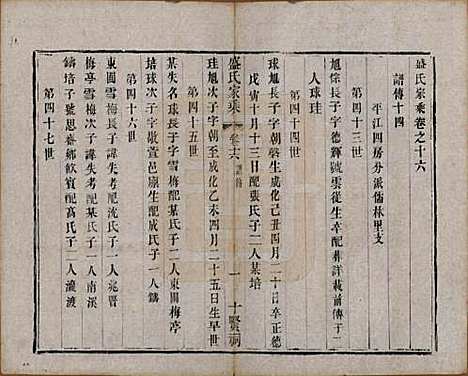 盛氏家乘卷之十六
譜傳十四
平江四房分派儒林里支
第四十三世
旭倧長子字德輝號雲從生卒配葬詳載前傳子二
人球珪
第四十四世
球旭長子字朝磬生成化己丑四月二十日卒正德
戊寅十月十三日配張氏子二人某培
盛氏家乘 卷十六 譜傳 一 十賢祠
珪旭次子字朝至成化乙未四月二十五日生早世
第四十五世
某失名球長子字雪梅配某氏子二人東圃梅亭
培球次子字散萱邑廩生配成氏子一人鑄
第四十六世
東圃雪梅長子諱失考配沈氏子一人兆晋
梅亭雪梅次子諱失考配某氏子一人南溪
鑄培子號思齋鄉飲賓配高氏子二人瀧渡
第四十七世